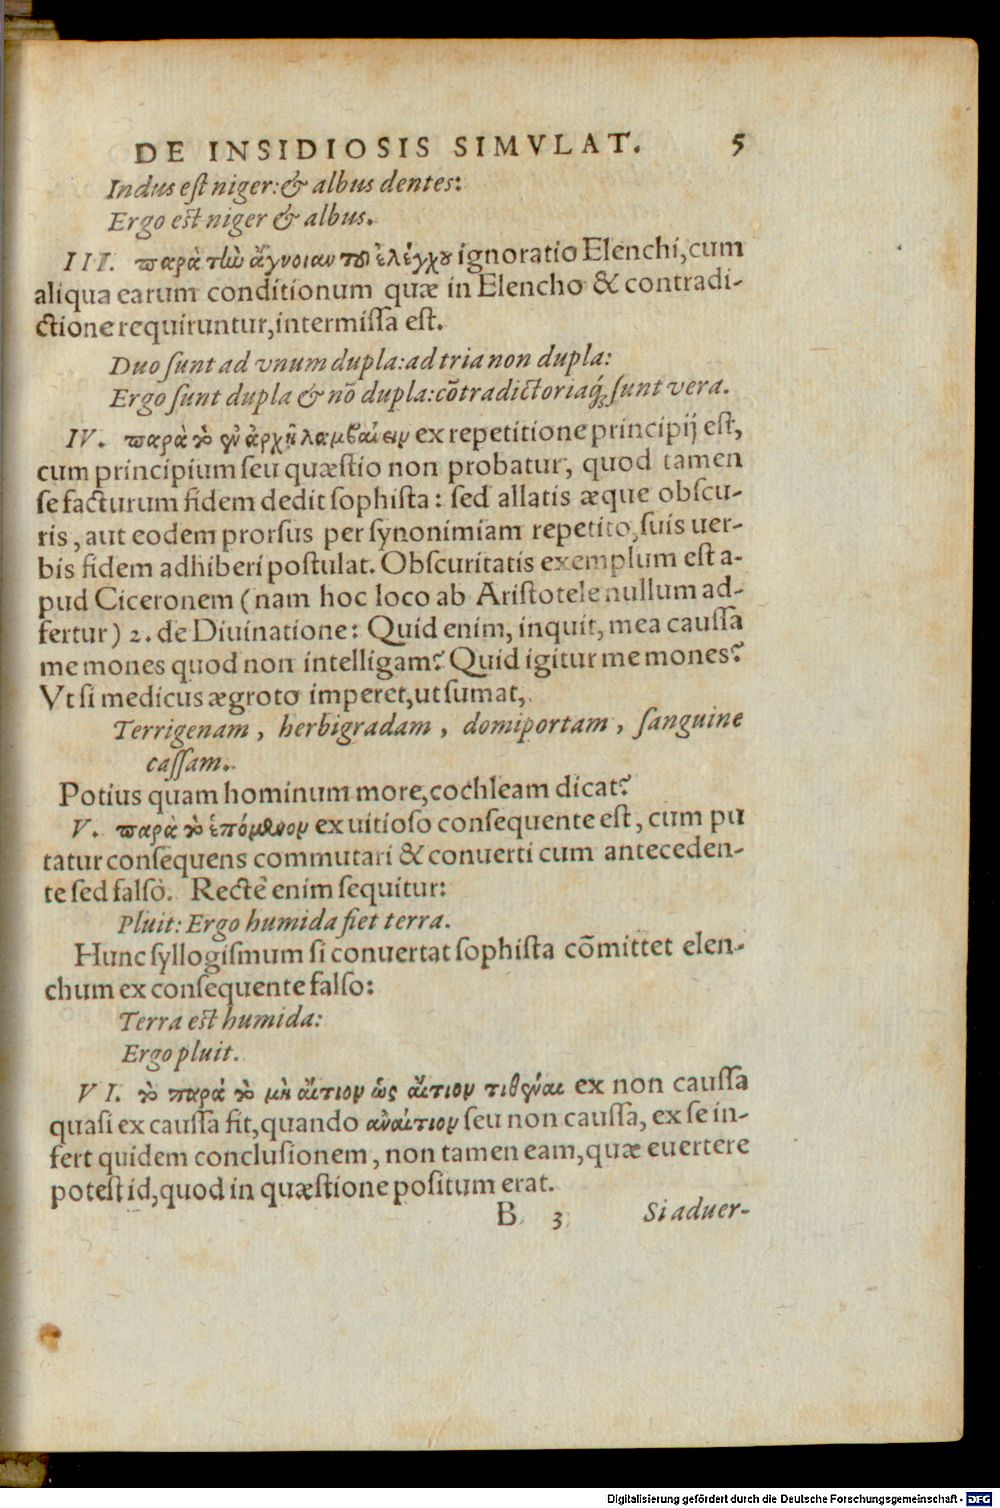 DE INSIDIOSIS SIMVLAT. 5
Indus est niger: & albus dentes:
Ergo est niger & albus.
III. παρὰ τὴν ἄγνοιαν τοῦ ἐλέγχου ignoratio Elenchi, cum
aliqua earum conditionum quæ in Elencho & contradi-
ctione requiruntur, intermissa est.
Duo sunt ad vnum dupla: ad tria non dupla:
Ergo sunt dupla & nō dupla: cōtradictoriaq́; sunt vera.
IV. παρὰ τὸ ἐν ἀρχῆ λαμβαίνειν ex repetitione principij est,
cum principium seu quæstio non probatur, quod tamen
se facturum fidem dedit sophista: sed allatis æque obscu-
ris, aut eodem prorsus per synonimiam repetito, suis uer-
bis fidem adhiberi postulat. Obscuritatis exemplum est a-
pud Ciceronem (nam hoc loco ab Aristotele nullum ad-
fertur) 2. de Diuinatione: Quid enim, inquit, mea caussa
me mones quod non intelligam? Quid igitur me mones?
Vt si medicus ægroto imperet, ut sumat,
Terrigenam, herbigradam, domiportam, sanguine
cassam.
Potius quam hominum more, cochleam dicat?
V. παρὰ τὸ ἑπόμενον ex uitioso consequente est, cum pu
tatur consequens commutari & conuerti cum anteceden-
te sed falsò. Rectè enim sequitur:
Pluit: Ergo humida fiet terra.
Hunc syllogismum si conuertat sophista cōmittet elen-
chum ex consequente falso:
Terra est humida:
Ergo pluit.
VI. τὸ παρὰ τὸ μὴ αἴτιον ὡς αἴτιον τιθέναι ex non caussa
quasi ex caussa fit, quando ἀναίτιον seu non caussa, ex se in-
fert quidem conclusionem, non tamen eam, quæ euertere
potest id, quod in quæstione positum erat.
B 3 Si aduer-
Digitalisierung gefördert durch die Deutsche Forschungsgemeinschaft - DFG